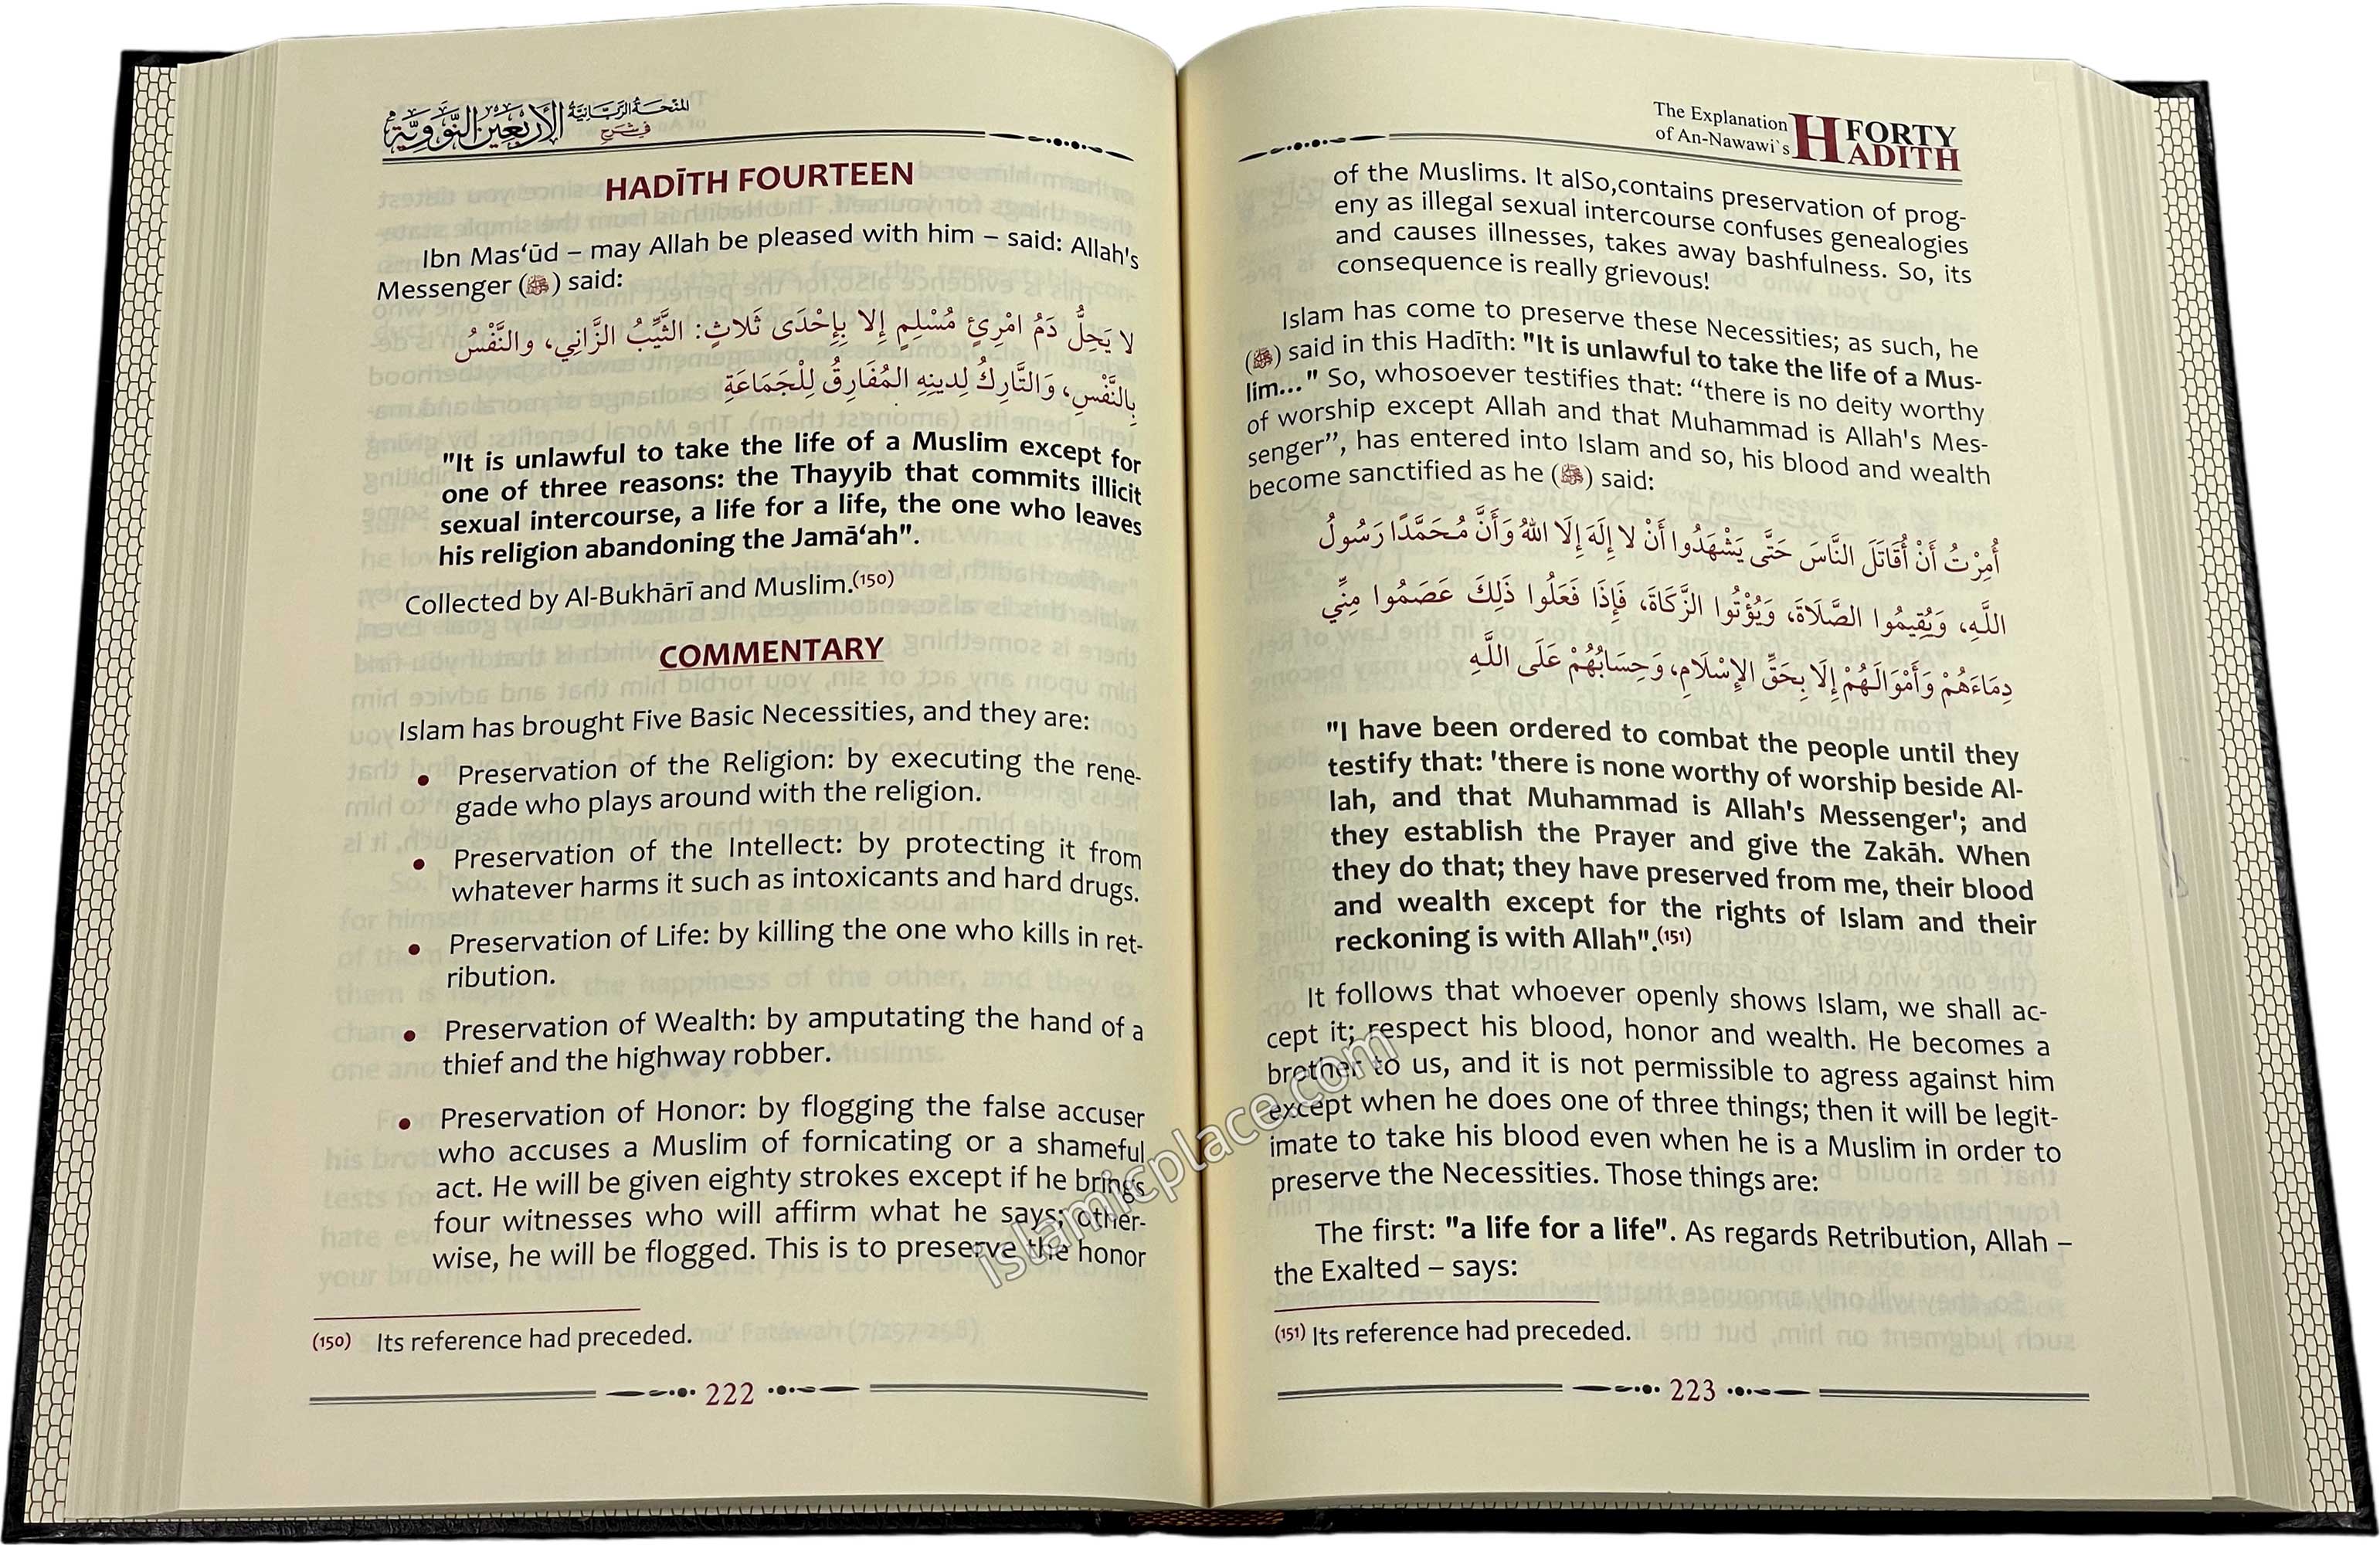 المنحة الربانية
في شرح
الأربعين النووية
HADĪTH FOURTEEN
Ibn Mas‘ūd – may Allah be pleased with him – said: Allah's
Messenger (ﷺ) said:
لا يَحِلُّ دَمُ امْرِئٍ مُسْلِمٍ إِلا بِإِحْدَى ثَلاثٍ: الثَّيِّبُ الزَّانِي، والنَّفْسُ
بِالنَّفْسِ، وَالتَّارِكُ لِدِينِهِ المُفَارِقُ لِلْجَمَاعَةِ
"It is unlawful to take the life of a Muslim except for
one of three reasons: the Thayyib that commits illicit
sexual intercourse, a life for a life, the one who leaves
his religion abandoning the Jamā‘ah".
Collected by Al-Bukhārī and Muslim.(150)
COMMENTARY
Islam has brought Five Basic Necessities, and they are:
• Preservation of the Religion: by executing the rene-
gade who plays around with the religion.
• Preservation of the Intellect: by protecting it from
whatever harms it such as intoxicants and hard drugs.
• Preservation of Life: by killing the one who kills in ret-
ribution.
• Preservation of Wealth: by amputating the hand of a
thief and the highway robber.
• Preservation of Honor: by flogging the false accuser
who accuses a Muslim of fornicating or a shameful
act. He will be given eighty strokes except if he brings
four witnesses who will affirm what he says; other-
wise, he will be flogged. This is to preserve the honor
(150) Its reference had preceded.
222
The Explanation
of An-Nawawi`s
FORTY
HADITH
of the Muslims. It alSo,contains preservation of prog-
eny as illegal sexual intercourse confuses genealogies
and causes illnesses, takes away bashfulness. So, its
consequence is really grievous!
Islam has come to preserve these Necessities; as such, he
(ﷺ) said in this Hadīth: "It is unlawful to take the life of a Mus-
lim..." So, whosoever testifies that: “there is no deity worthy
of worship except Allah and that Muhammad is Allah's Mes-
senger”, has entered into Islam and so, his blood and wealth
become sanctified as he (ﷺ) said:
أُمِرْتُ أَنْ أُقَاتَلَ النَّاسَ حَتَّى يَشْهَدُوا أَنْ لا إِلَهَ إِلَا اللهُ وَأَنَّ مُحَمَّدًا رَسُولُ
اللَّهِ، وَيُقِيمُوا الصَّلَاةَ، وَيُؤْتُوا الزَّكَاةَ، فَإِذَا فَعَلُوا ذَلِكَ عَصَمُوا مِنِّي
دِمَاءَهُمْ وَأَمْوَالَهُمْ إِلَا بِحَقِّ الإِسْلَامِ، وَحِسَابُهُمْ عَلَى اللَّهِ
"I have been ordered to combat the people until they
testify that: 'there is none worthy of worship beside Al-
lah, and that Muhammad is Allah's Messenger'; and
they establish the Prayer and give the Zakāh. When
they do that; they have preserved from me, their blood
and wealth except for the rights of Islam and their
reckoning is with Allah".(151)
It follows that whoever openly shows Islam, we shall ac-
cept it; respect his blood, honor and wealth. He becomes a
brother to us, and it is not permissible to agress against him
except when he does one of three things; then it will be legit-
imate to take his blood even when he is a Muslim in order to
preserve the Necessities. Those things are:
The first: "a life for a life". As regards Retribution, Allah –
the Exalted – says:
(151) Its reference had preceded.
223
islamicplace.com